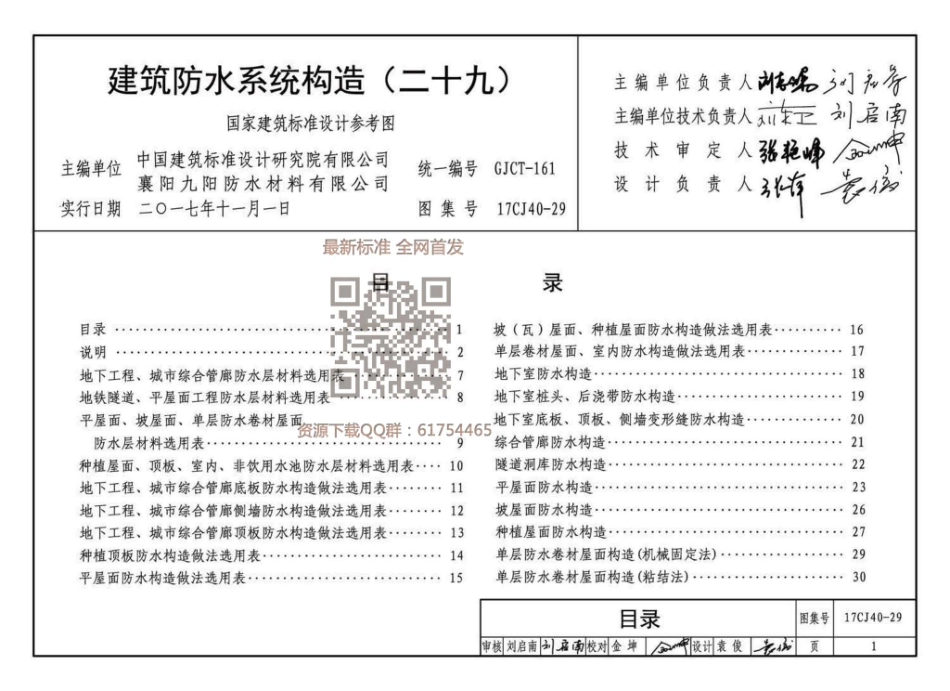 建筑防水系统构造（二十九）
国家建筑标准设计参考图
主编单位 中国建筑标准设计研究院有限公司
襄阳九阳防水材料有限公司
统一编号 GJCT-161
实行日期 二○一七年十一月一日
图集号 17CJ40-29
主编单位负责人
主编单位技术负责人 刘启南
技术审定人
设计负责人
最新标准 全网首发
目录
目录 1
说明 2
地下工程、城市综合管廊防水层材料选用表 7
地铁隧道、平屋面工程防水层材料选用表 8
平屋面、坡屋面、单层防水卷材屋面
防水层材料选用表 9
种植屋面、顶板、室内、非饮用水池防水层材料选用表 10
地下工程、城市综合管廊底板防水构造做法选用表 11
地下工程、城市综合管廊侧墙防水构造做法选用表 12
地下工程、城市综合管廊顶板防水构造做法选用表 13
种植顶板防水构造做法选用表 14
平屋面防水构造做法选用表 15
资源下载QQ群：61754465
坡（瓦）屋面、种植屋面防水构造做法选用表 16
单层卷材屋面、室内防水构造做法选用表 17
地下室防水构造 18
地下室桩头、后浇带防水构造 19
地下室底板、顶板、侧墙变形缝防水构造 20
综合管廊防水构造 21
隧道洞库防水构造 22
平屋面防水构造 23
坡屋面防水构造 26
种植屋面防水构造 27
单层防水卷材屋面构造(机械固定法) 29
单层防水卷材屋面构造(粘结法) 30
目录 图集号 17CJ40-29
审核 刘启南 刘启南 校对 金坤 设计 袁俊 页 1